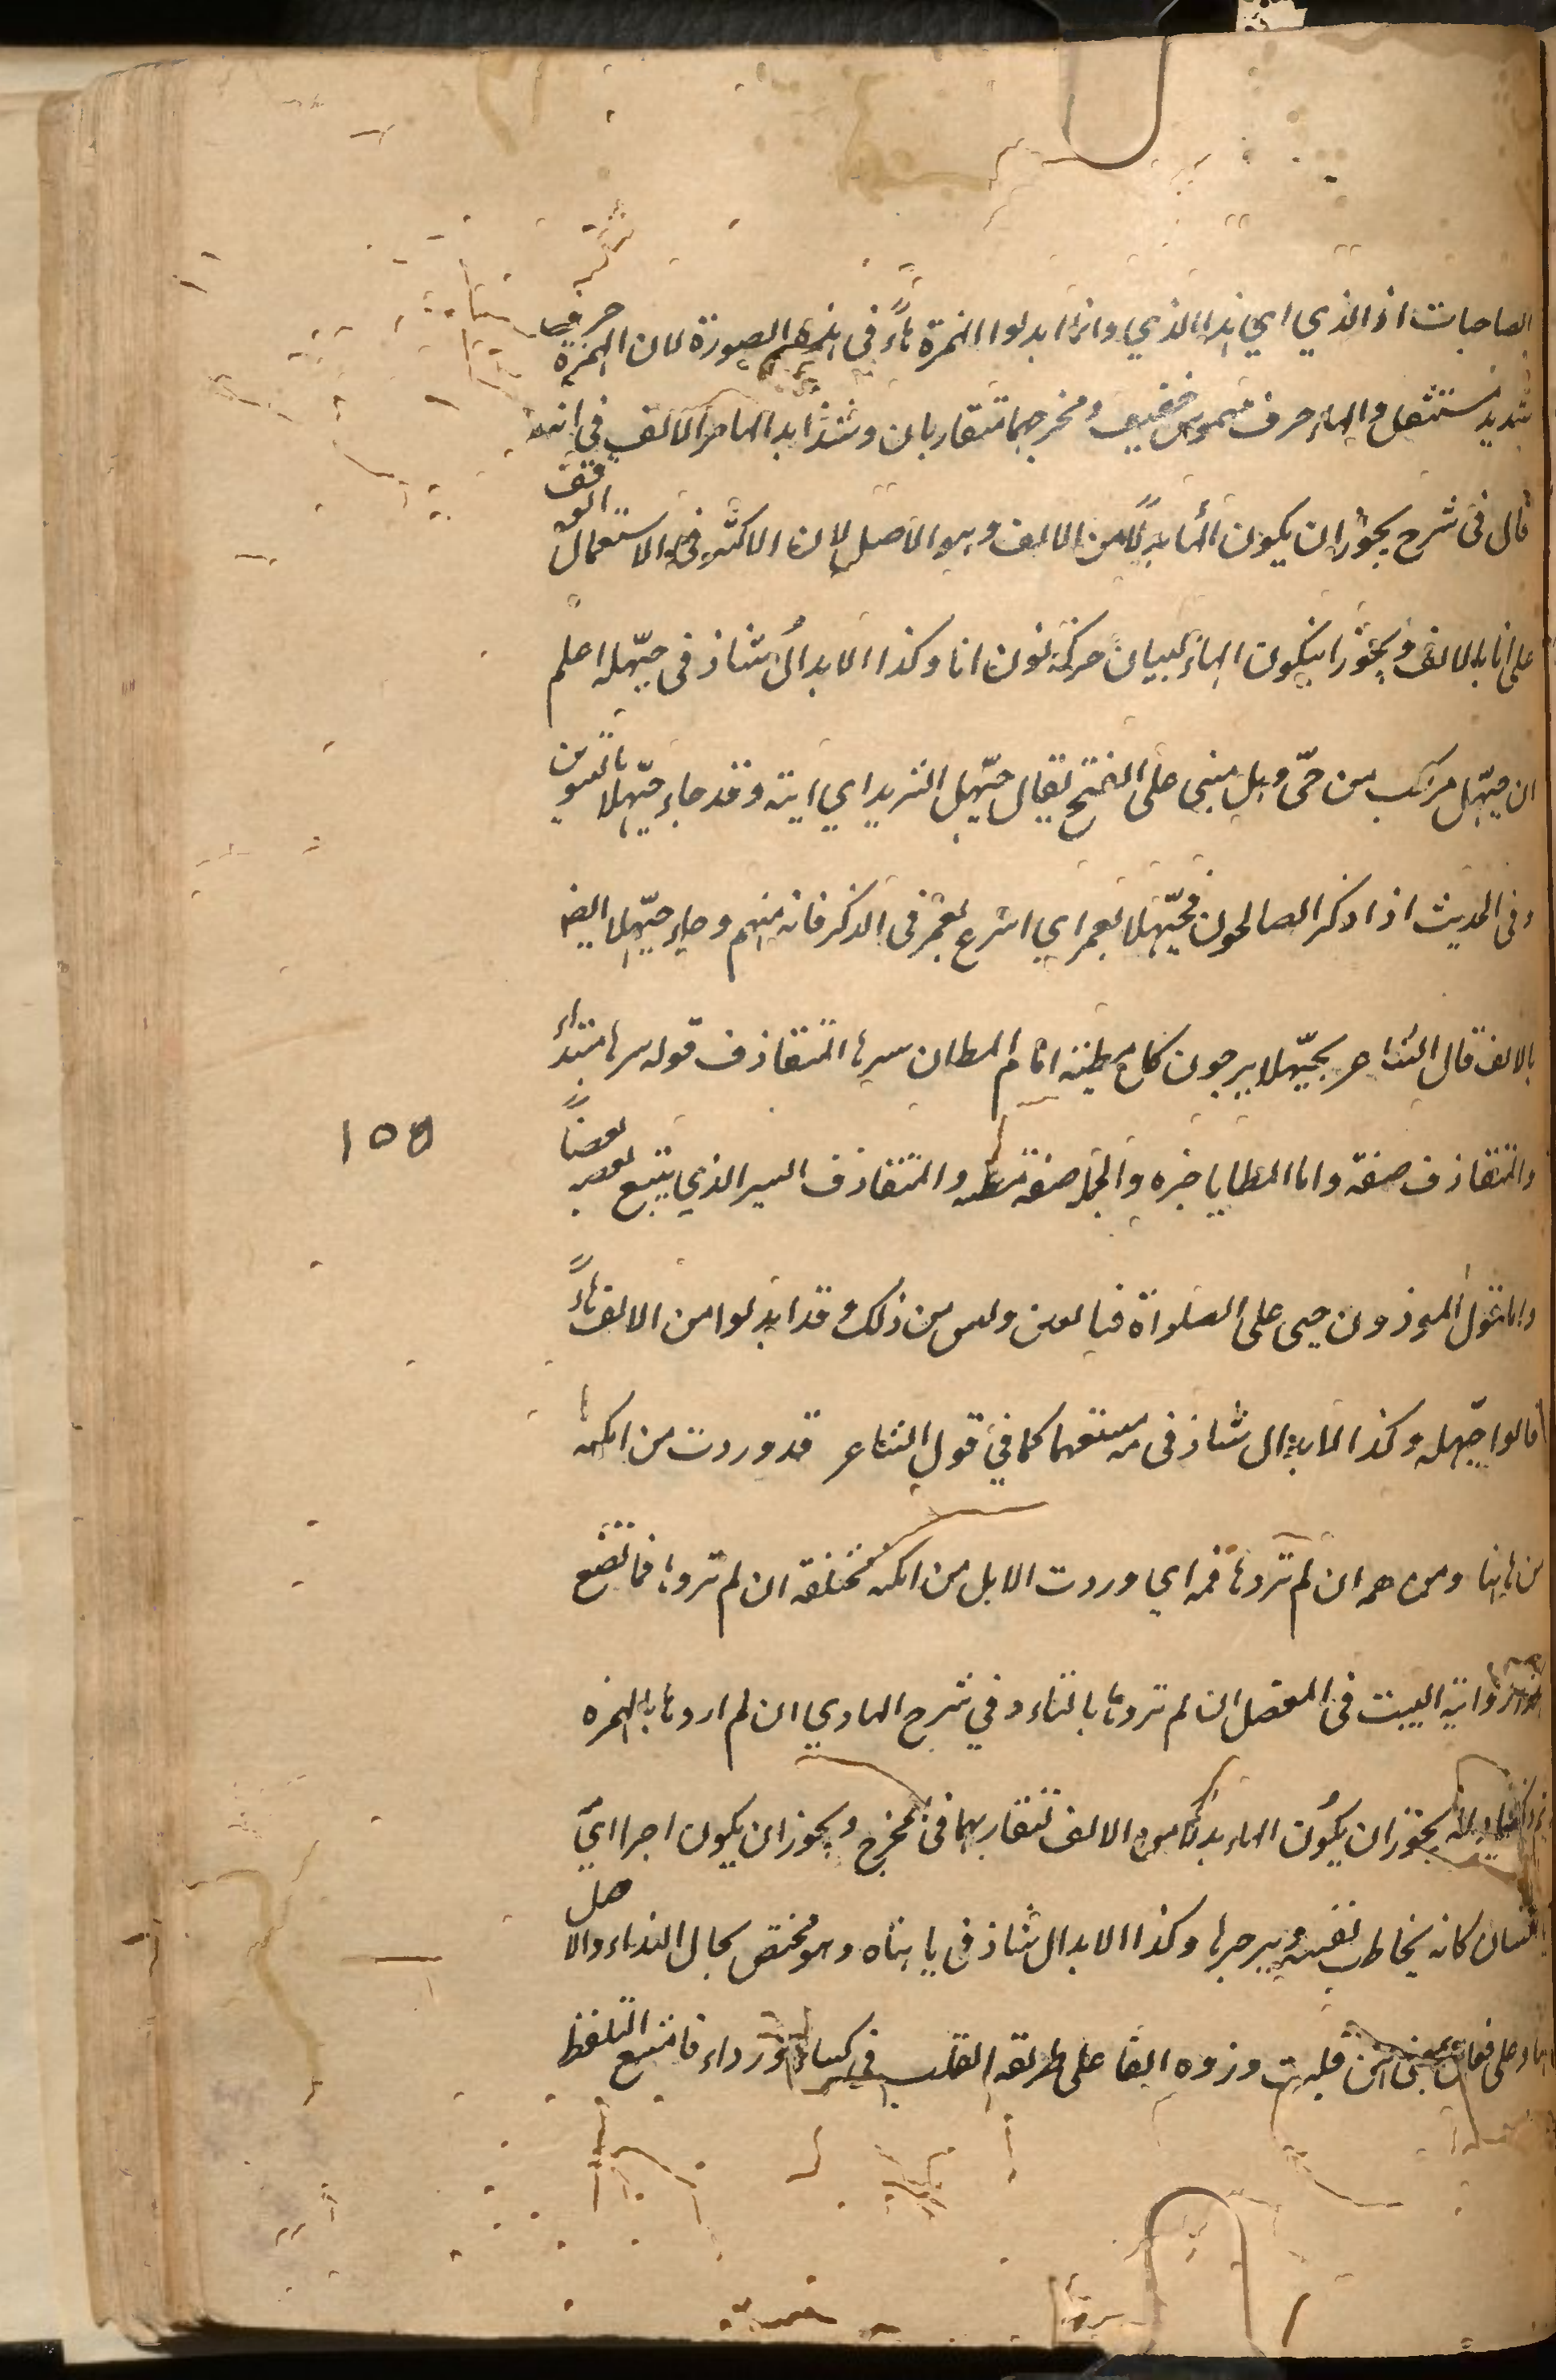 الصاحبات اذا الذي اي اهذا الذي وانما ابدلوا الهمزة هاءً في هذه الصورة لان الهمزة حرف
شديد مستثقل والهاء حرف مهموس خفيف ومخرجهما متقاربان وشذ ابدالها من الالف في انه
قال في شرح يجوز ان يكون الهاء بدلًا من الالف وهو الاصل لان الاكثر في الاستعمال الوقف
على انا بالالف ويجوز ان يكون الهاء لبيان حركة نون انا وكذا الابدال شاذ في حيّهله اعلم
ان حيّهل مركب من حيّ وهل مبني على الفتح يقال حيّهل الثريد اي ايته وقد جاء حيّهلا بالتنوين
وفي الحديث اذا ذكر الصالحون فحيّهلا بعمر اي اسرع بعمر في الذكر فانه منهم وجاء حيّهلا ايضا
بالالف قال الشاعر بحيّهلا يزجون كل مطية امام المطايا سيرها المتقاذف قوله سيرها مبتداء
والمتقاذف صفة وامام المطايا خبره والجملة صفة مطية والمتقاذف السير الذي يتبع بعضه بعضاً
١٥٥
واما قول الموذنون حيى على الصلواة فبالعين وليس من ذلك وقد ابدلوا من الالف هاءً
قالوا حيّهله وكذا الابدال شاذ في مه مستفهما كما في قول الشاعر قد وردت من امكنه
من هاهنا ومن هنه ان لم تروها فمه اي وردت الابل من امكنه مختلفة ان لم تروها فما تصنع
رواية البيت في المفصل ان لم تروها بالتاء وفي شرح الهادي ان لم اروها بالهمزه
يجوز ان يكون الهاء بدلًا من الالف لتقاربهما في المخرج ويجوز ان يكون اجرا ايّ
انسان كانه يخاطب نفسه ويزجرها وكذا الابدال شاذ في يا هناه وهو مختص بحال النداء والاصل
هناو على فعال بمعنى ابن قلبت وزوه الفا على طريقة القلب في كساء ورداء فامتنع التلفظ